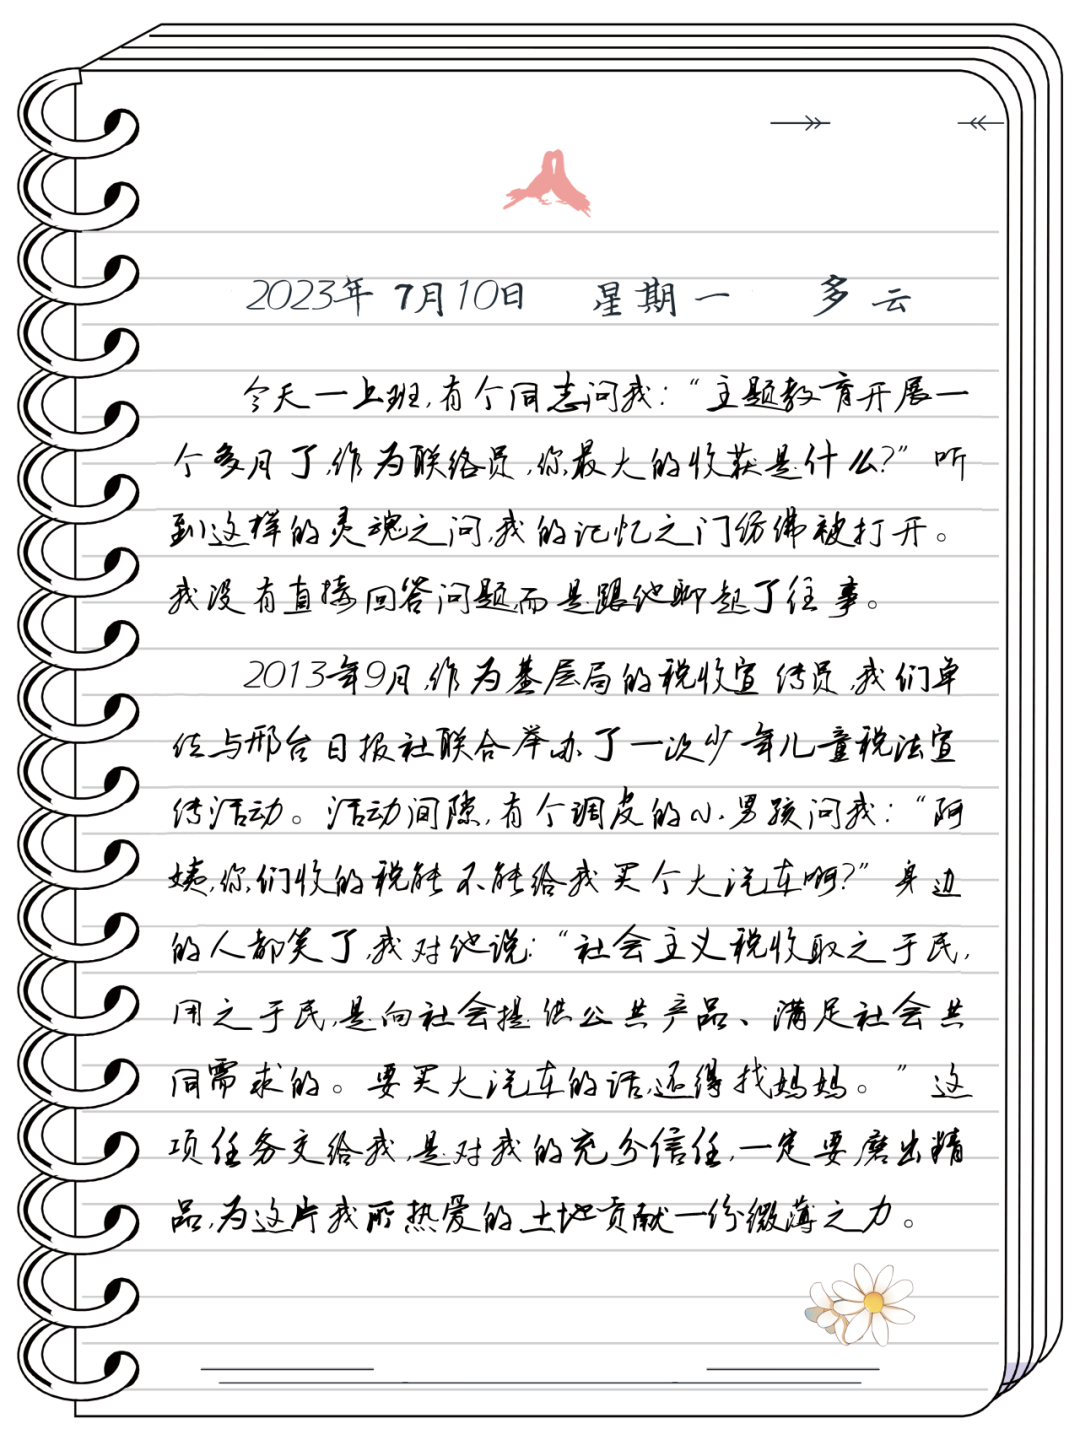 2023年7月10日 星期一 多云
今天一上班,有个同志问我:“主题教育开展一
个多月了,作为联络员,你最大的收获是什么?”听
到这样的灵魂之问,我的记忆之门仿佛被打开。
我没有直接回答问题,而是跟他聊起了往事。
2013年9月,作为基层局的税收宣传员,我们单
位与邢台日报社联合举办了一次少年儿童税法宣
传活动。活动间隙,有个调皮的小男孩问我:“阿
姨,你们收的税能不能给我买个大汽车啊?”身边
的人都笑了,我对他说:“社会主义税收取之于民,
用之于民,是向社会提供公共产品、满足社会共
同需求的。要买大汽车的话,还得找妈妈。”这
项任务交给我,是对我的充分信任,一定要磨出精
品,为这片我所热爱的土地贡献一份微薄之力。